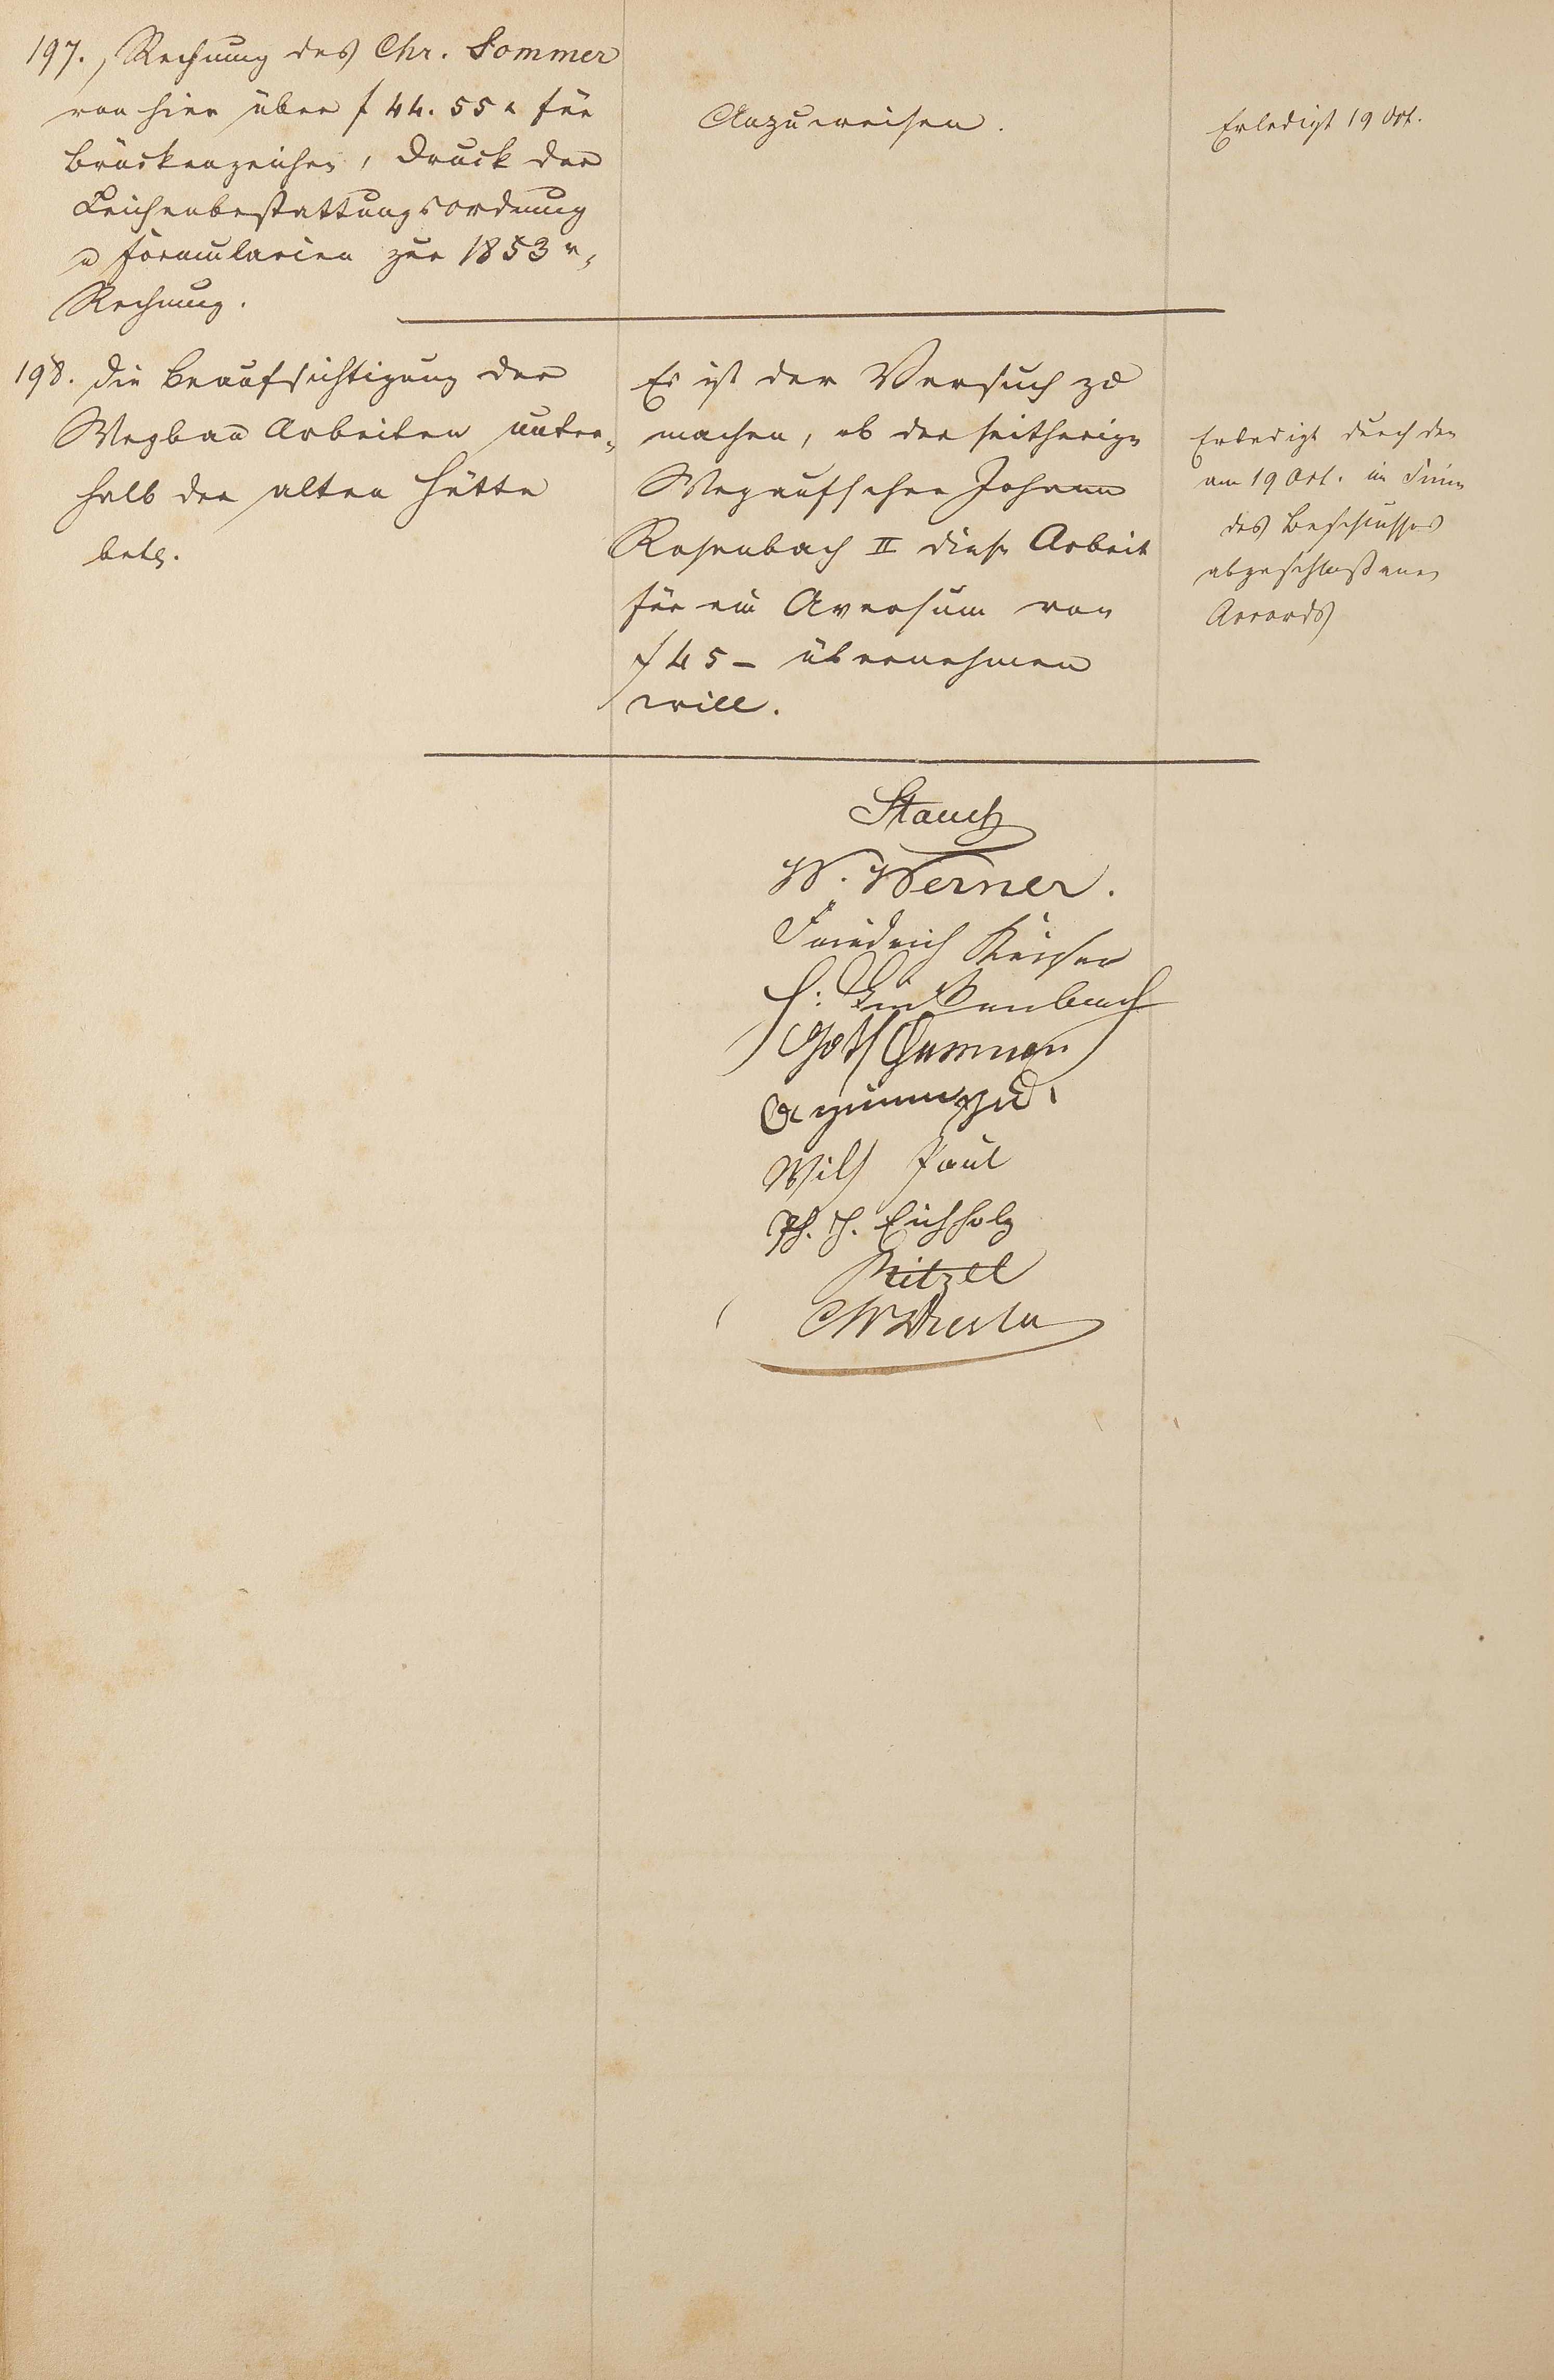 197. Rechnung des Chr. Sommer
von hier über f 44. 55 x für
Brückenzeichen, Druck der
Leichenbestattungsordnung
u Formularien zur 1853r,
Rechnung.
Anzuweisen.
Erledigt 19 Oct.
198. Die Beaufsichtigung der
Wegbau Arbeiten unter-
halb der alten Hütte
betr.
Es ist der Versuch zu
machen, ob der seitherige
Wegaufseher Johann
Rosenbach II diese Arbeit
für ein Aversum von
f 45 – übernehmen
will.
Erledigt durch den
am 19 Oct. im Sinne
des Beschlusses
abgeschlossenen
Accords
Stauch
W. Werner.
Friedrich
Wilh Paul
Ph. H. Eichholz
Ritzel